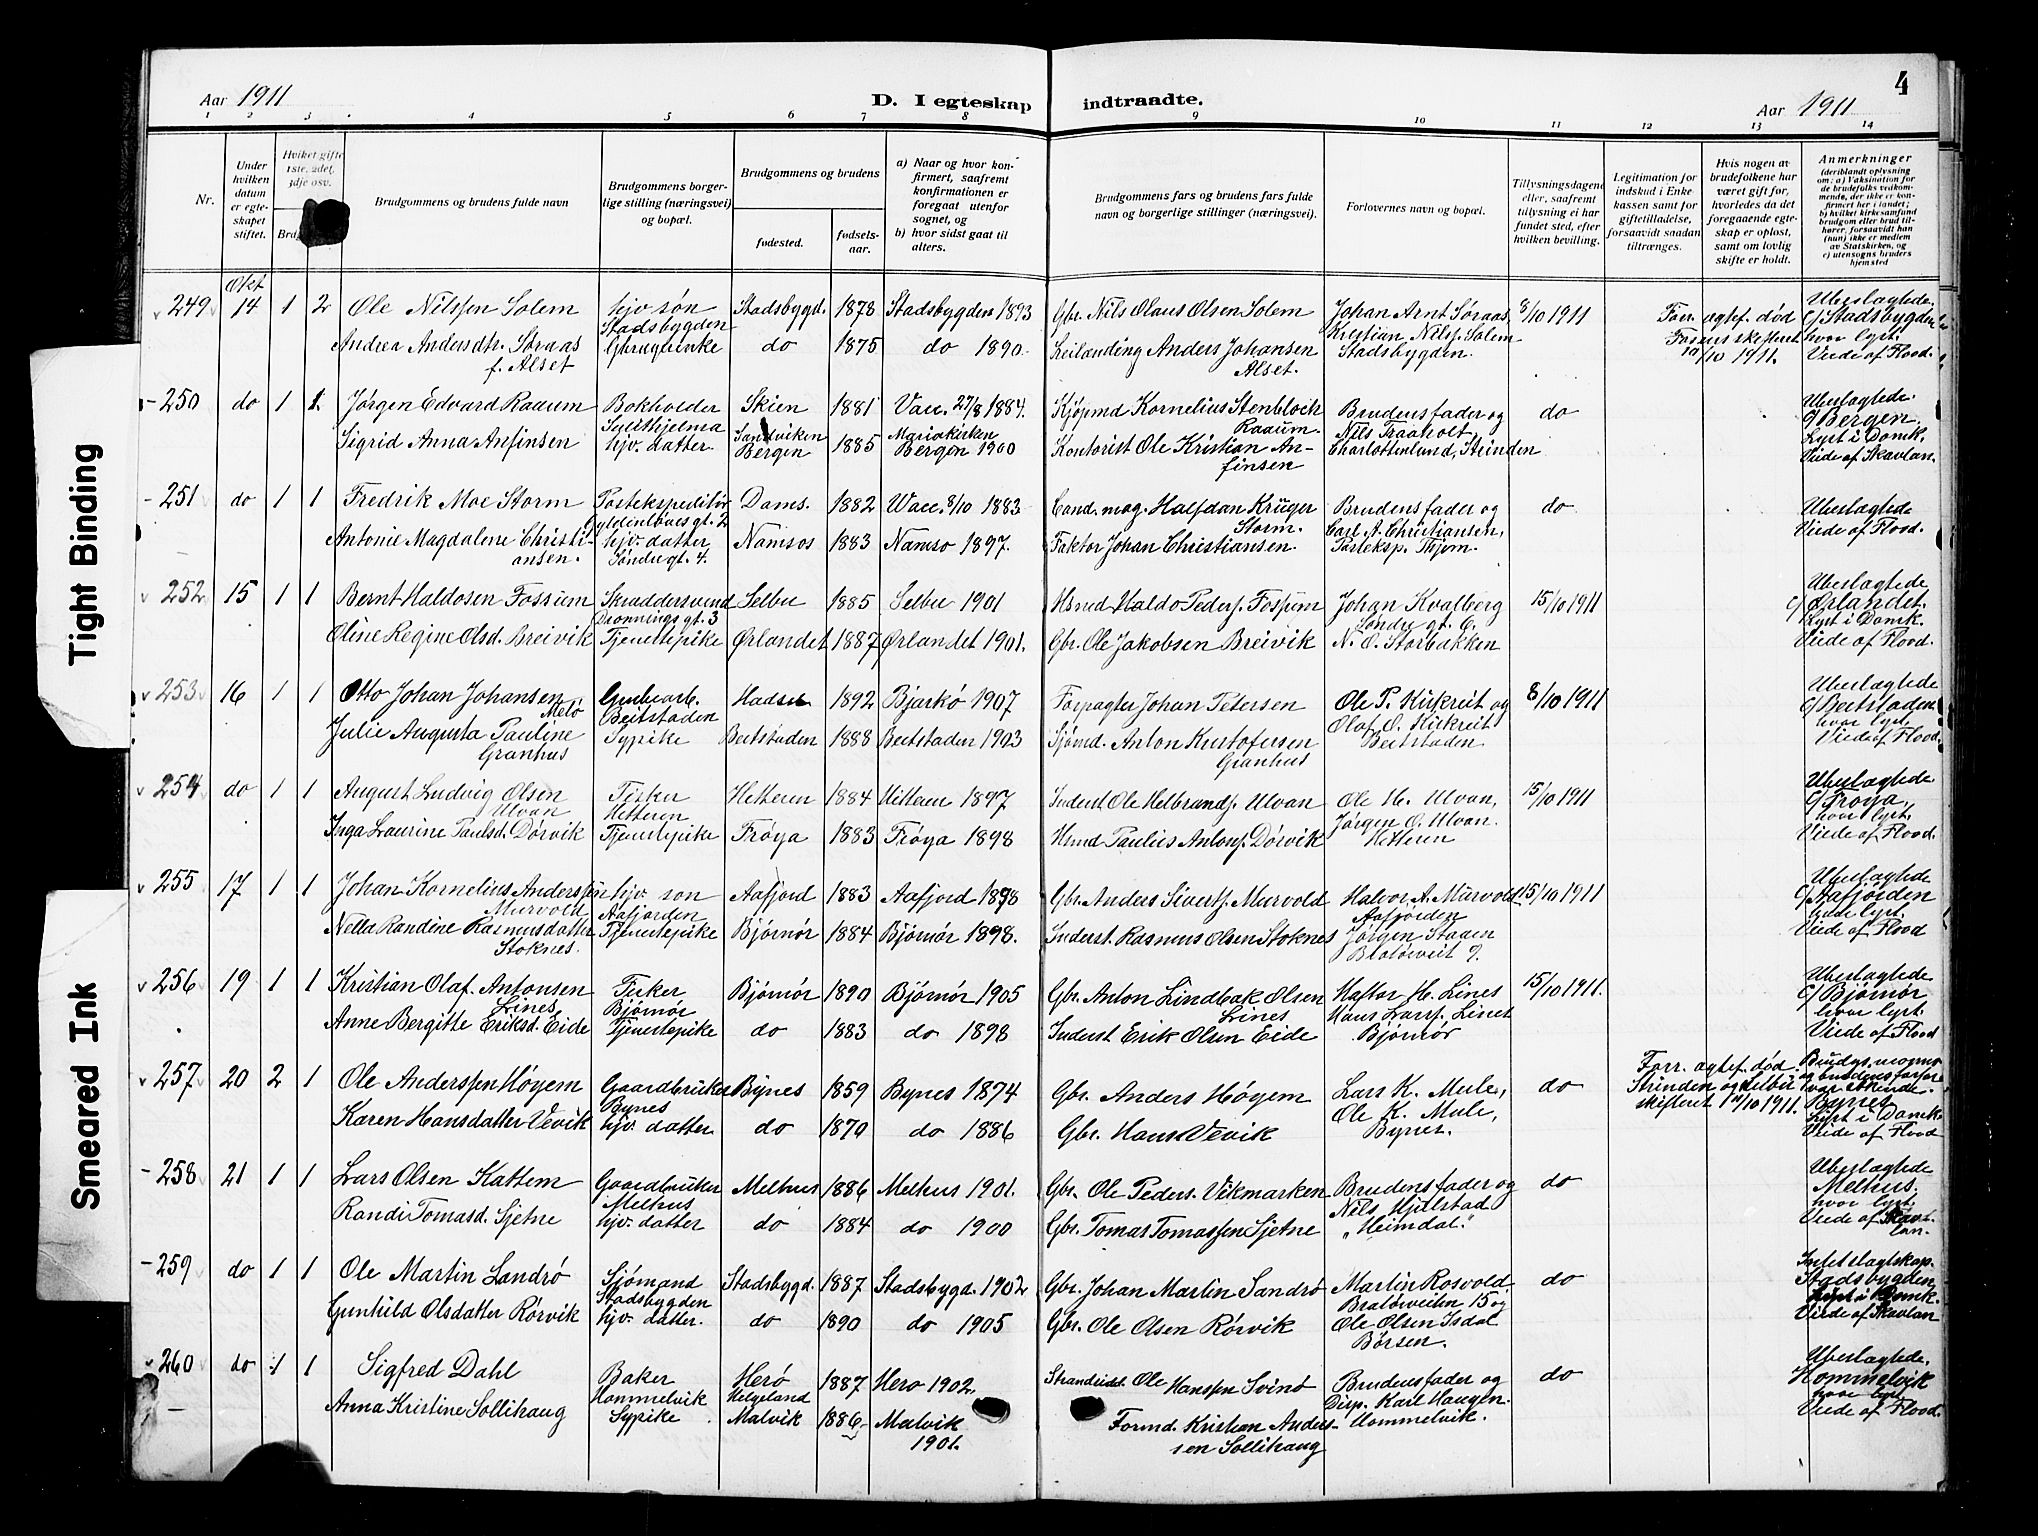 Aar 1911
D. I egteskap indtraadte.
Aar 1911
4
1 2 3 4 5 6 7 8 9 10 11 12 13 14
Nr.
Under hvilken datum er egteskapet stiftet.
Hvilket gifte 1ste, 2det, 3dje osv.
Brudgommens og brudens fulde navn
Brudgommens borgerlige stilling (næringsvei) og bopæl.
Brudgommens og brudens
fødested.
fødselsaar.
a) Naar og hvor konfirmert, saafremt konfirmationen er foregaat utenfor sognet, og
b) hvor sidst gaat til alters.
Brudgommens fars og brudens fars fulde navn og borgerlige stillinger (næringsvei).
Forlovernes navn og bopæl.
Tillysningsdagene eller, saafremt tillysning ei har fundet sted, efter hvilken bevilling.
Legitimation for indskud i Enkekassen samt for giftetilladelse, forsaavidt saadan tiltrænges.
Hvis nogen av brudefolkene har været gift før, hvorledes da det foregaaende egteskap er opløst, samt om lovlig skifte er holdt.
Anmerkninger (deriblandt oplysning om: a) Vaksination for de brudefolks vedkommende, der ikke er konfirmert her i landet; b) hvilket kirkesamfund brudgom eller brud tilhører, forsaavidt han (hun) ikke er medlem av Statskirken, og c) utensogns bruders hjemsted
Okt
249 14 1 2 Ole Nilssen Solem hjv. søn Stadsbygd. 1878 Stadsbygden 1893 Gbr. Nils Olaus Olsen Solem Johan Arnt Søraas 8/10 1911 Forr. egtef. død Ubeslægtede.
Stadsbygden Kristian Nilss. Solem Fosnes skifteret c/ Stadsbygden
Andrea Andersdtr. Søraas Gbrugerenke do 1875 do 1890. Leilending Anders Johansen Stadsbygden. 10/10 1911. hvor lyst.
f. Alset Alset. Viede af Flood.
250 do 1 1 Jørgen Edvard Raaum Bokholder Skien 1881 Vacc. 27/8 1884. Kjøpmd Kornelius Stenbloch Brudens fader og do Ubeslægtede.
Sulithjelma Sandviken Mariakirken Raaum. Nils Traaholt, c/ Bergen.
Sigrid Anna Anfinsen hjv. datter. Bergen 1885 Bergen 1900 Kontorist Ole Kristian An- Charlottenlund, Strinden Lyst i Domk.
finsen Viede af Skavlan.
251 do 1 1 Fredrik Moe Storm Postekspeditør Drams. 1882 Vacc. 8/10 1883 Cand. mag. Halfdan Krüger Brudens fader og do Ubeslægtede
Gyldenløvesgt. 2 Storm. Carl A. Christiansen, Viede af Flood.
Antonie Magdalene Christi- hjv. datter Namsos 1883 Namsos 1897. Faktor Johan Christiansen. Posteksp. Thjem.
ansen. Søndregt. 4.
252 15 1 1 Bernt Haldosen Fossum Skræddersvend Selbu 1885 Selbu 1901 Hsmd Haldo Peders. Fossum Johan Kvalberg 15/10 1911 Ubeslægtede
Dronningsgt. 3 Søndregt. 6. c/ Ørlandet.
Oline Regine Olsd. Breivik Tjenestepike Ørlandet 1887 Ørlandet 1901. Gbr. Ole Jakobsen Breivik N. O. Storbakken Lyst i Domk.
Viede af Flood.
253 16 1 1 Otto Johan Johansen Grubearb. Hadsel 1892 Bjarkø 1907 Forpagter Johan Petersen Ole P. Kirkreit og 8/10 1911 Ubeslægtede
Melø Beitstaden Olaf O. Kirkreit c/ Beitstaden.
Julie Augusta Pauline Sypike Beitstaden 1888 Beitstaden 1903 Sjømd. Anton Kristofersen Beitstaden hvor lyst.
Granhus Granhus Viede af Flood.
254 do 1 1 August Ludvig Olsen Fisker Hitteren 1884 Hitteren 1897 Inderst Ole Helbrands. Ulvan Ole H. Ulvan, 15/10 1911 Ubeslægtede
Ulvan Hitteren Jørgen O. Ulvan. c/ Frøya,
Inga Laurine Paulsd. Dørvik Tjenestepike Frøya 1883 Frøya 1898 Hsmd Paulius Antons. Dørvik Hitteren hvor lyst.
Viede af Flood.
255 17 1 1 Johan Kornelius Anderssen hjv. søn Aafjord 1883 Aafjord 1898 Gbr. Anders Siverts. Murvold Halvor A. Murvold 15/10 1911 Ubeslægtede
Murvold Aafjorden Aafjorden c/ Aafjorden
Nella Randine Rasmusdatter Tjenestepike Bjørnør 1884 Bjørnør 1898. Inderst. Rasmus Olsen Stoknes Jørgen Staden hvor lyst.
Stoknes. Bratørveit 7. Viede af Flood
256 19 1 1 Kristian Olaf Antonsen Fisker Bjørnør 1890 Bjørnør 1905 Gbr. Anton Lindbak Olsen Haftor H. Lines 15/10 1911. Ubeslægtede
Lines Bjørnør Lines Hans Larss. Lines c/ Bjørnør,
Anne Bergitte Eriksd. Eide Tjenestepike do 1883 do 1898 Inderst Erik Olsen Eide Bjørnør hvor lyst.
Viede af Flood
257 20 2 1 Ole Anderssen Høyem Gaardbruker Bynes 1859 Bynes 1874 Gbr. Anders Høyem Lars K. Mule, do Forr. egtef. død. Brudgs. mormor
Bynes Ole K. Mule, Strinden og Selbu og brudens farfar
Karen Hansdatter Vevik hjv. datter do 1870 do 1886 Gbr. Hans Vevik Bynes. skifteret 17/10 1911. var søskende.
Bynes
Lyst i Domk.
Viede af Flood
258 21 1 1 Lars Olsen Kattem Gaardbruker Melhus 1886 Melhus 1901. Gbr. Ole Peders. Vikmarken Brudens fader og do Ubeslægtede
Melhus Nils Hjelstad Melhus.
Randi Tomasd. Sjetne hjv. datter do 1884 do 1900 Gbr. Tomas Tomassen Sjetne "Heimdal". hvor lyst.
Viede af Skavlan.
259 do 1 1 Ole Martin Landrø Sjømand Stadsbygd. 1887 Stadsbygd. 1902 Gbr. Johan Martin Landrø Martin Rosvold, do Intet slegtskap.
Stadsbygden Bratørveiten 15 og Stadsbygden,
Gunhild Olsdatter Rørvik hjv. datter. do 1890 do 1905 Gbr. Ole Olsen Rørvik Ole Olsen Isdal Lyst i Domk.
Børsen. Viede af Skavlan
260 do 1 1 Sigfred Dahl Baker Herø 1887 Herø 1902. Strandsid. Ole Hanssen Svinø Brudens fader og do Ubeslægtede,
Hommelvik Helgeland Disp. Karl Haugen. Hommelvik
Anna Kristine Sollihaug Sypike Malvik 1886 Malvik Formd. Kristian Anders- Hommelvik. hvor lyst
1901. sen Sollihaug Viede af Flood.
Tight Binding
Smeared Ink